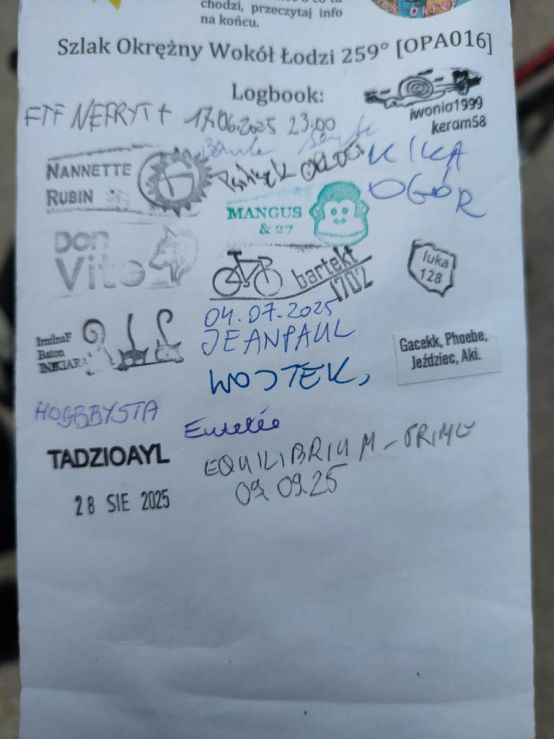 chodzi, przeczytaj info
na końcu.
Szlak Okrężny Wokół Łodzi 259° [OPA016]
Logbook:
iwonia1999
keram58
FTF NEFRYT + 17.06.2025 23:00
KIKA
OGÓR
NANNETTE
RUBIN
MANGUS
& 27
DON
Vito
bartekt
1702
luka
128
IrminaF
Baton
INKIARA
04.07.2025
JEANPAUL
Gacekk, Phoebe,
Jeździec, Aki.
WOJTEK,
HOBBYSTA
TADZIOAYL
28 SIE 2025
EQUILIBRIUM-PRIME
09.09.25